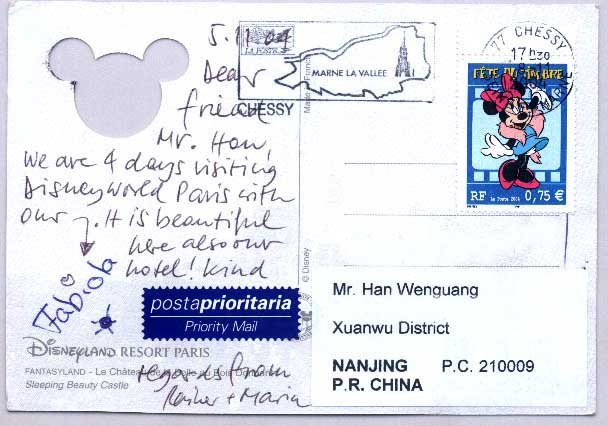 5.11.04
Dear
friend
Mr. Han,
We are 4 days visiting
Disneyworld Paris with
our . It is beautiful
here also our
hotel! Kind
Fabiola
regards from
+ Maria
LA POSTE
MARNE LA VALLEE
CHESSY
77 CHESSY
17H30
FÊTE DU TIMBRE
RF La Poste 2004 0,75 €
Made in France
© Disney
postaprioritaria
Priority Mail
Mr. Han Wenguang
Xuanwu District
NANJING P.C. 210009
P.R. CHINA
DISNEYLAND RESORT PARIS
FANTASYLAND - Le Château de la Belle au Bois Dormant
Sleeping Beauty Castle